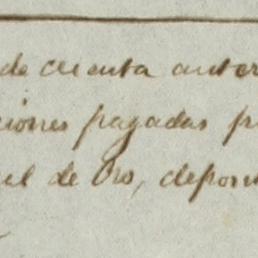 de cuenta anter
ciones pagadas p
el de Oro, depos